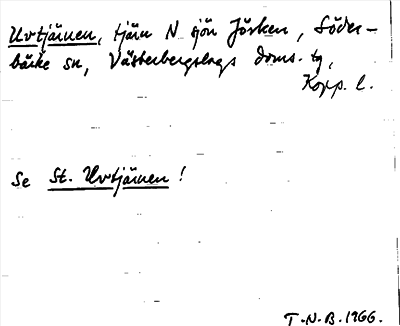 Urvtjärnen, tjärn N sjön Jörken, Söder-
bärke sn, Västerbergslags doms. tg,
Kopp. l.
Se St. Urvtjärnen!
T.N.B. 1966.